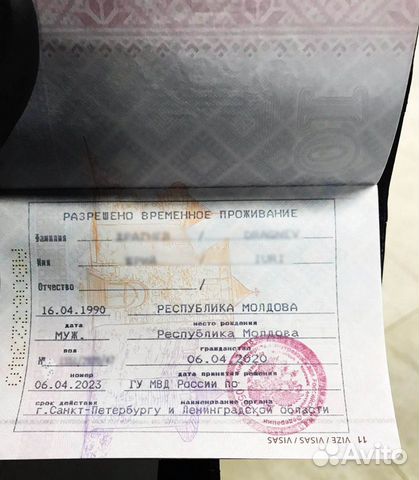 РАЗРЕШЕНО ВРЕМЕННОЕ ПРОЖИВАНИЕ
Фамилия /
Имя /
Отчество /
16.04.1990 РЕСПУБЛИКА МОЛДОВА
дата место рождения
МУЖ. Республика Молдова
пол гражданство
№ 06.04.2020
номер дата принятия решения
06.04.2023 ГУ МВД России по
срок действия наименование органа
г.Санкт-Петербургу и Ленинградской области
11 VIZE / VISAS / VISAS
Avito